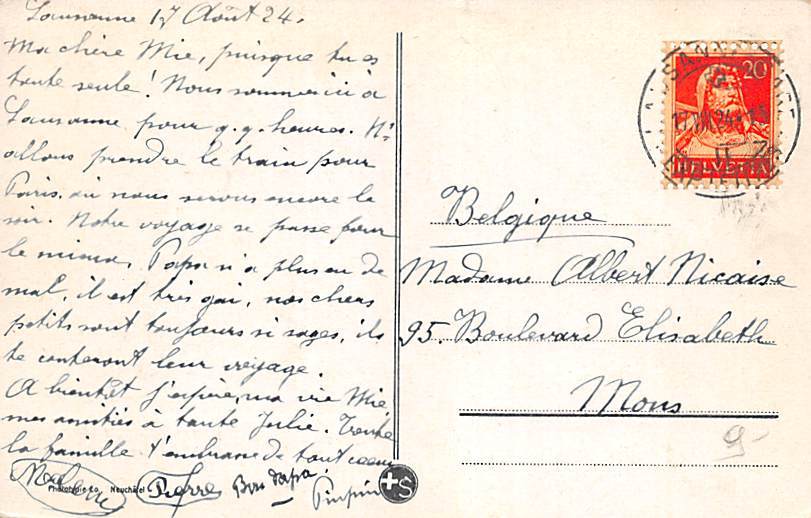 Lausanne 17 Août 24.
Ma chère Mie, puisque tu es
toute seule! Nous sommes ici à
Lausanne pour q.q. heures. Ns
allons prendre le train pour
Paris où nous serons encore le
soir. Notre voyage se passe pour
le mieux. Papa n'a plus eu de
mal, il est très gai, nos chers
petits sont toujours si sages, ils
te conteront leur voyage.
A bientôt j'espère, ma Mie
mes amitiés à tante Julie. Toute
la famille t'embrasse de tout coeur
Pierre Bon Papa. Pimpin
Phototypie Co. Neuchâtel
+S
20
HELVETIA
LAUSANNE
17.VIII.24
Belgique
Madame Albert Nicaise
95. Boulevard Elisabeth
Mons
9-